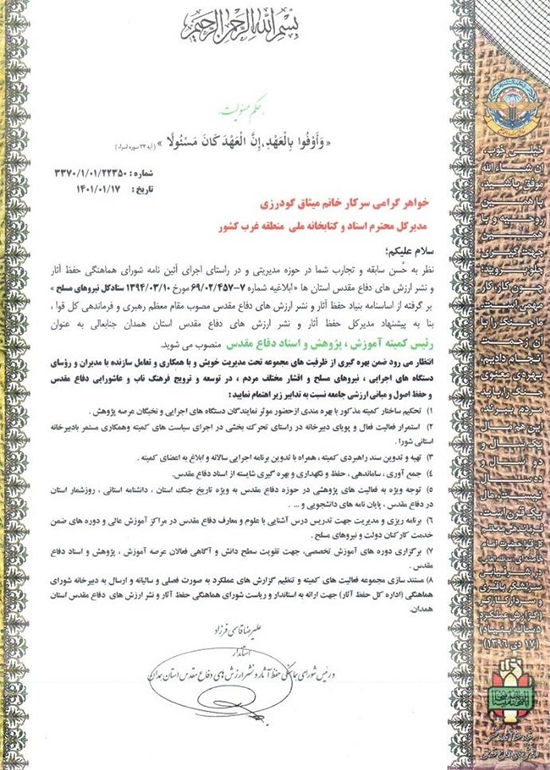 بسم الله الرحمن الرحیم
حکم مسئولیت
« وَ أَوْفُوا بِالْعَهْدِ، إِنَّ الْعَهْدَ كَانَ مَسْئُولًا » (آیه ۳۴ سوره اسراء)
شماره : ۳۳۷۰/۱/۰۱/۲۲۳۵۰
تاریخ : ۱۴۰۱/۰۱/۱۷
خواهر گرامی سرکار خانم میثاق گودرزی
مدیرکل محترم اسناد و کتابخانه ملی منطقه غرب کشور
سلام علیکم؛
نظر به حُسن سابقه و تجارب شما در حوزه مدیریتی و در راستای اجرای آئین نامه شورای هماهنگی حفظ آثار
و نشر ارزش های دفاع مقدس استان ها « ابلاغیه شماره ۷-۶۹/۰۲/۴۵۷ مورخ ۱۳۹۴/۰۳/۱۰ ستادکل نیروهای مسلح »
بر گرفته از اساسنامه بنیاد حفظ آثار و نشر ارزش های دفاع مقدس مصوب مقام معظم رهبری و فرماندهی کل قوا ،
بنا به پیشنهاد مدیرکل حفظ آثار و نشر ارزش های دفاع مقدس استان همدان جنابعالی به عنوان
رئیس کمیته آموزش ، پژوهش و اسناد دفاع مقدس منصوب می شوید.
انتظار می رود ضمن بهره گیری از ظرفیت های مجموعه تحت مدیریت خویش و با همکاری و تعامل سازنده با مدیران و رؤسای
دستگاه های اجرایی ، نیروهای مسلح و اقشار مختلف مردم ، در توسعه و ترویج فرهنگ ناب و عاشورایی دفاع مقدس
و حفظ اصول و مبانی ارزشی جامعه نسبت به تدابیر زیر اهتمام نمایید :
۱) تحکیم ساختار کمیته مذکور با بهره مندی از حضور موثر نمایندگان دستگاه های اجرایی و نخبگان عرصه پژوهش .
۲) استمرار فعالیت فعال و پویای دبیرخانه در راستای تحرک بخشی در اجرای سیاست های کمیته وهمکاری مستمر بادبیرخانه
استانی شورا .
۳) تهیه و تدوین سند راهبردی کمیته ، همراه با تدوین برنامه اجرایی سالانه و ابلاغ به اعضای کمیته .
۴) جمع آوری ، ساماندهی ، حفظ و نگهداری و بهره گیری شایسته از اسناد دفاع مقدس.
۵) توجه ویژه به فعالیت های پژوهشی در حوزه دفاع مقدس به ویژه تاریخ جنگ استان ، دانشنامه استانی ، روزشمار استان
در دفاع مقدس ، پایان نامه های دانشجویی و... .
۶) برنامه ریزی و مدیریت جهت تدریس درس آشنایی با علوم و معارف دفاع مقدس در مراکز آموزش عالی و دوره های ضمن
خدمت کارکنان دولت و نیروهای مسلح .
۷) برگزاری دوره های آموزش تخصصی، جهت تقویت سطح دانش و آگاهی فعالان عرصه آموزش ، پژوهش و اسناد دفاع
مقدس .
۸) مستند سازی مجموعه فعالیت های کمیته و تنظیم گزارش های عملکرد به صورت فصلی و سالیانه و ارسال به دبیرخانه شورای
هماهنگی (اداره کل حفظ آثار) جهت ارائه به استاندار و ریاست شورای هماهنگی حفظ آثار و نشر ارزش های دفاع مقدس استان
همدان.
علیرضا قاسمی فرزاد
استاندار
و رئیس شورای هماهنگی حفظ آثار و نشر ارزش های دفاع مقدس استان همدان
خیلی خوب،
ان شاء الله
موفق باشید،
با همین
روحیه و با
همین
جهت گیری
جلو بروید؛
چون کار، کار
مهمی است.
ما جنگ را با
آن زحمت
انجام دادیم،